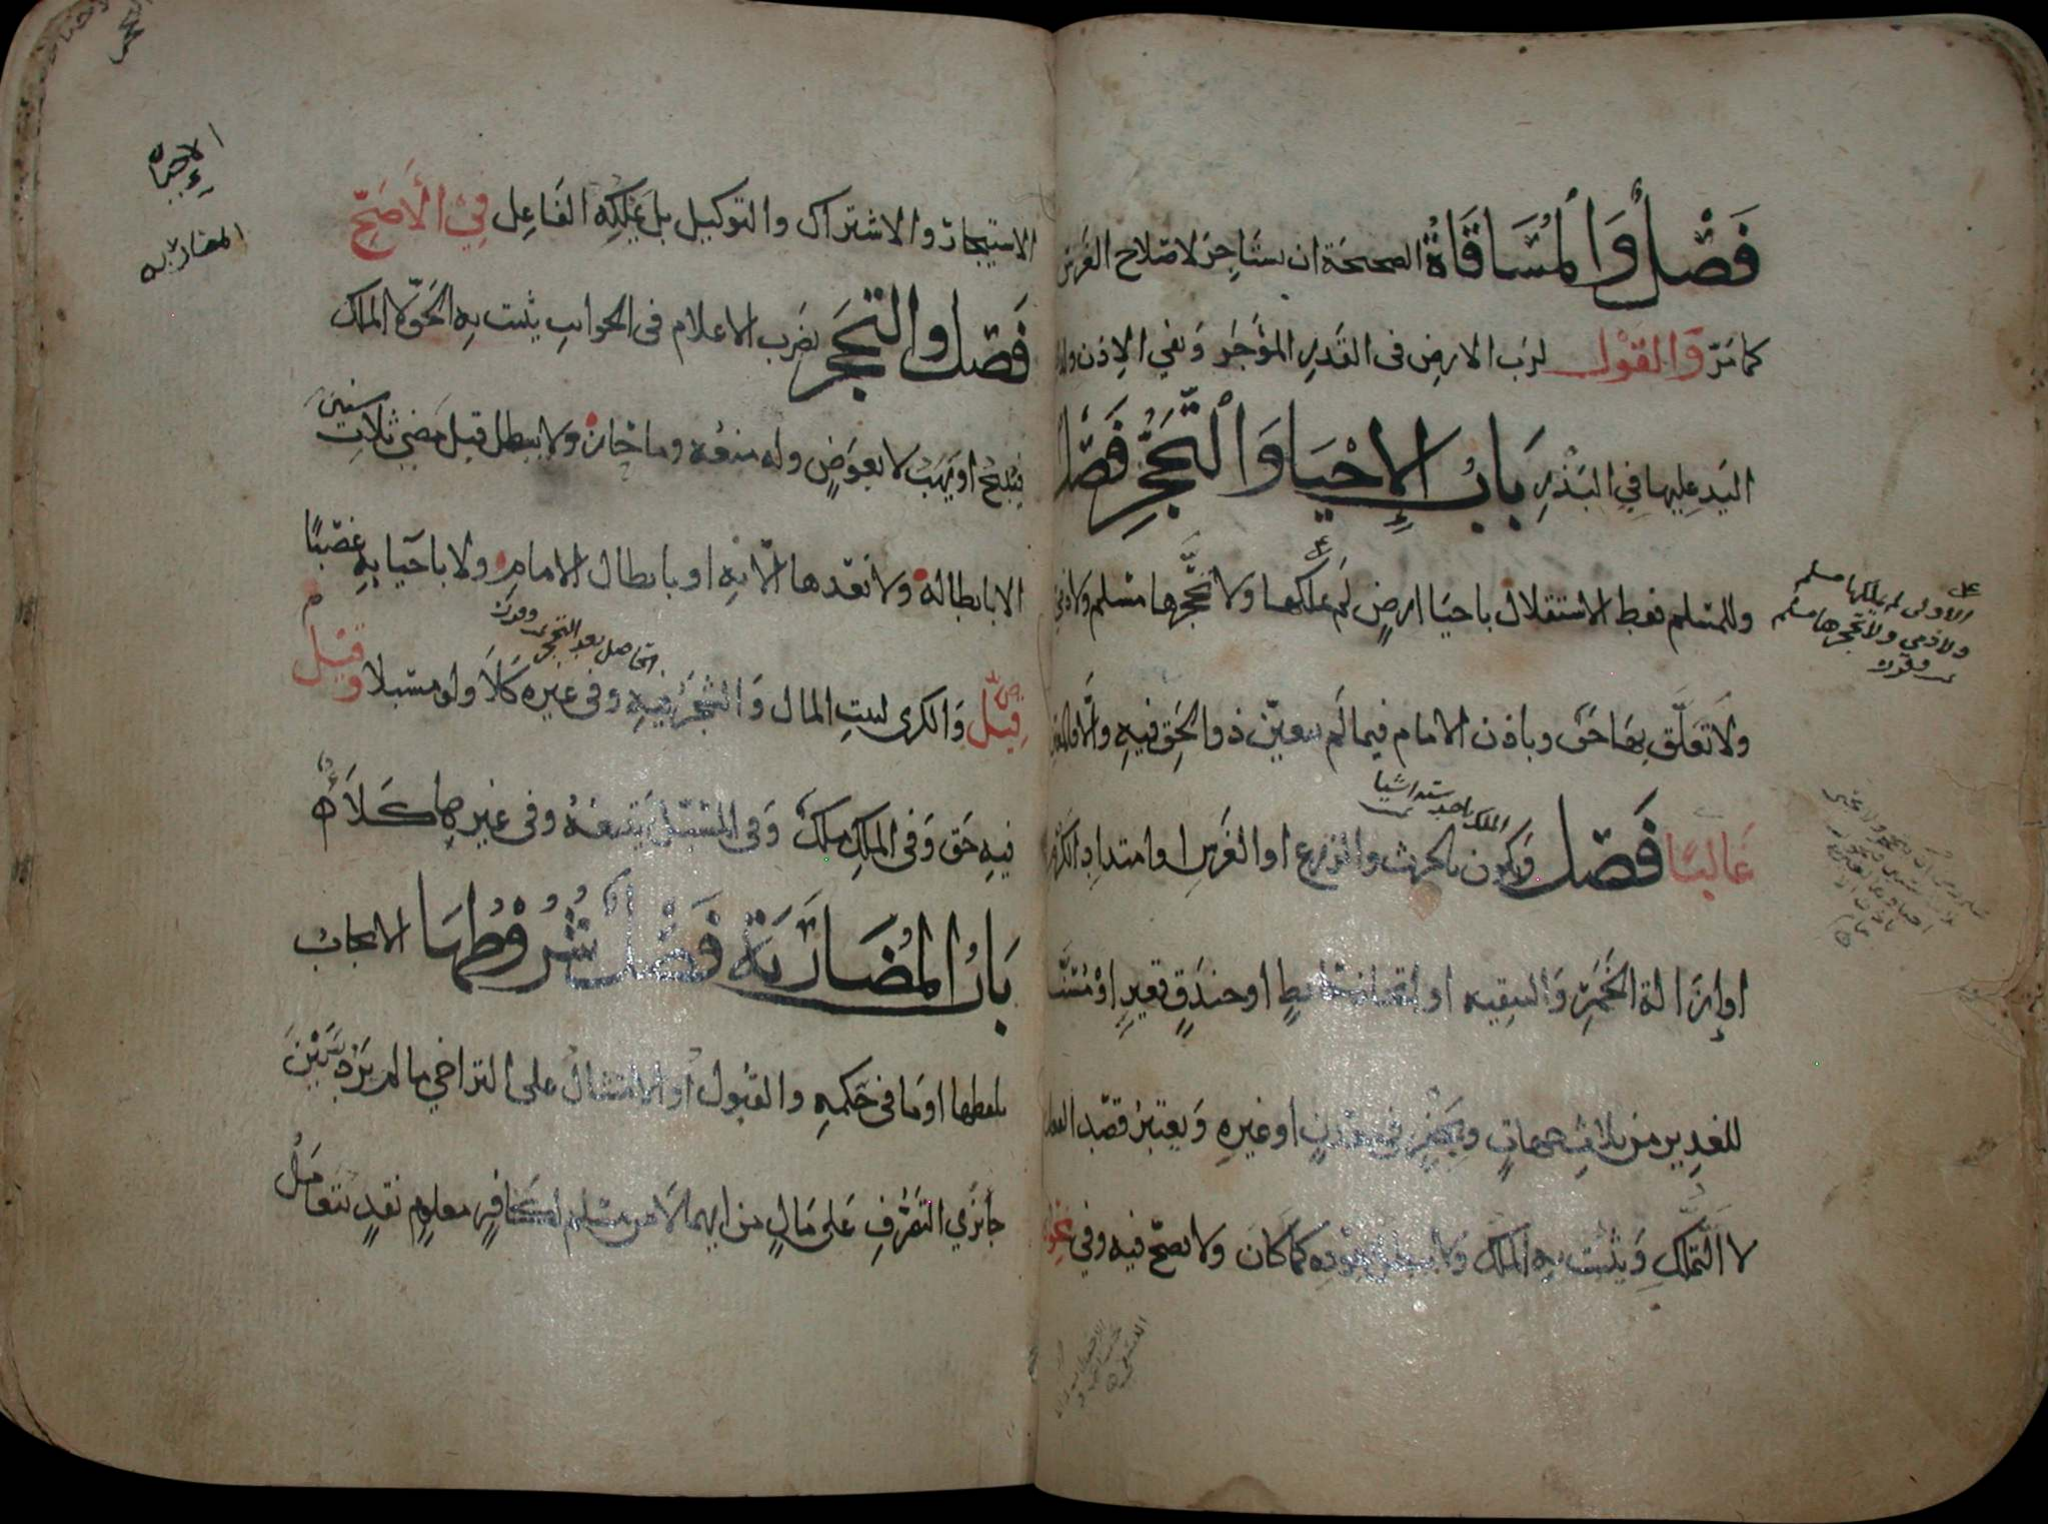 فَصْلٌ وَالْمُسَاقَاةُ الصحيحة ان يستاجر لاصلاح الغرس
كما مَرّ وَالقَوْل لرب الارض في القَدرِ المؤَجَر وَنفي الاِذن
اليَد عليها فِي البَذْرِ بَابُ الإِحْيَا وَالتَّحَجُّرِ فَصْل
وللمسلم فقط الاستقلال باحيا ارضٍ لَم يملكها ولا تَحَجَّرها مسلم ولا ذمي
ولا تَعَلَّق بهَا حَق وباذن الامام فيما لَم يتعيّن ذو الحَق فيهِ وَالَّا فالمعين
غَالبًا فَصْل وَيكون بالحرث والزرع او الغَرس او امتداد الكَرْم
او اِزَالة الخَمَر وَالتنقيه او اتخاذ حَايطٍ او خندَقٍ قعيرٍ اوْ مُسَنَّا
للغدِير من ثلاث جهاتٍ وبحَفْرٍ في معدنٍ او غيرهِ وَيعتَبَرُ قصْد الفعل
لا التَّملّكِ وَيثبُت بهِ المُلك وَلا يبطل بعَوْدِه كما كَانَ ولا يصحّ فيه وفي نحوه
الاولى لم يملكها مسلم
ولا ذمي ولا تحجرها مسلم
الاحيا
المضاربه
الاستيجار والاشتراك والتوكيل بل يملكِهُ الفَاعِل فِي الأَصَحِّ
فَصْل وَالتحَجُّر بضَربِ الاعلام في الجوانبِ يثبت بِهِ الحَقّ لا الملك
فيبيحُ او يَهَبُ لا بعِوَضٍ وله منعُه وما حَاز ولا يبطل قبل مضي ثلاث سنين
الا بابطاله ولا بَعْدها الّا بهِ او بابطال الامامِ ولا باحيايهِ غصبًا
قِيلَ وَالكرى لبيتِ المال وَالشجَرُ فيهِ وفي غيره كَلَا ولو مسبلا وقيل
فيهِ حَق وَفي الملكِ مِلك وَفي المُسَبَّل يَتبعُهُ وفي غيرِها كَلَأ
بَابُ المُضَارَبَة فَصْل شُرُوطُهَا الايجابُ
بلفظها او مَا في حكمهِ والقبُول اَو الامتثال على التراخي ما لم يَرُدّ بَيْنَ
جَائزَي التصَرُّفِ عَلى مَالٍ من ايهما لَا من مسلم لكافِرٍ معلومٍ نقدٍ يتعَامَل